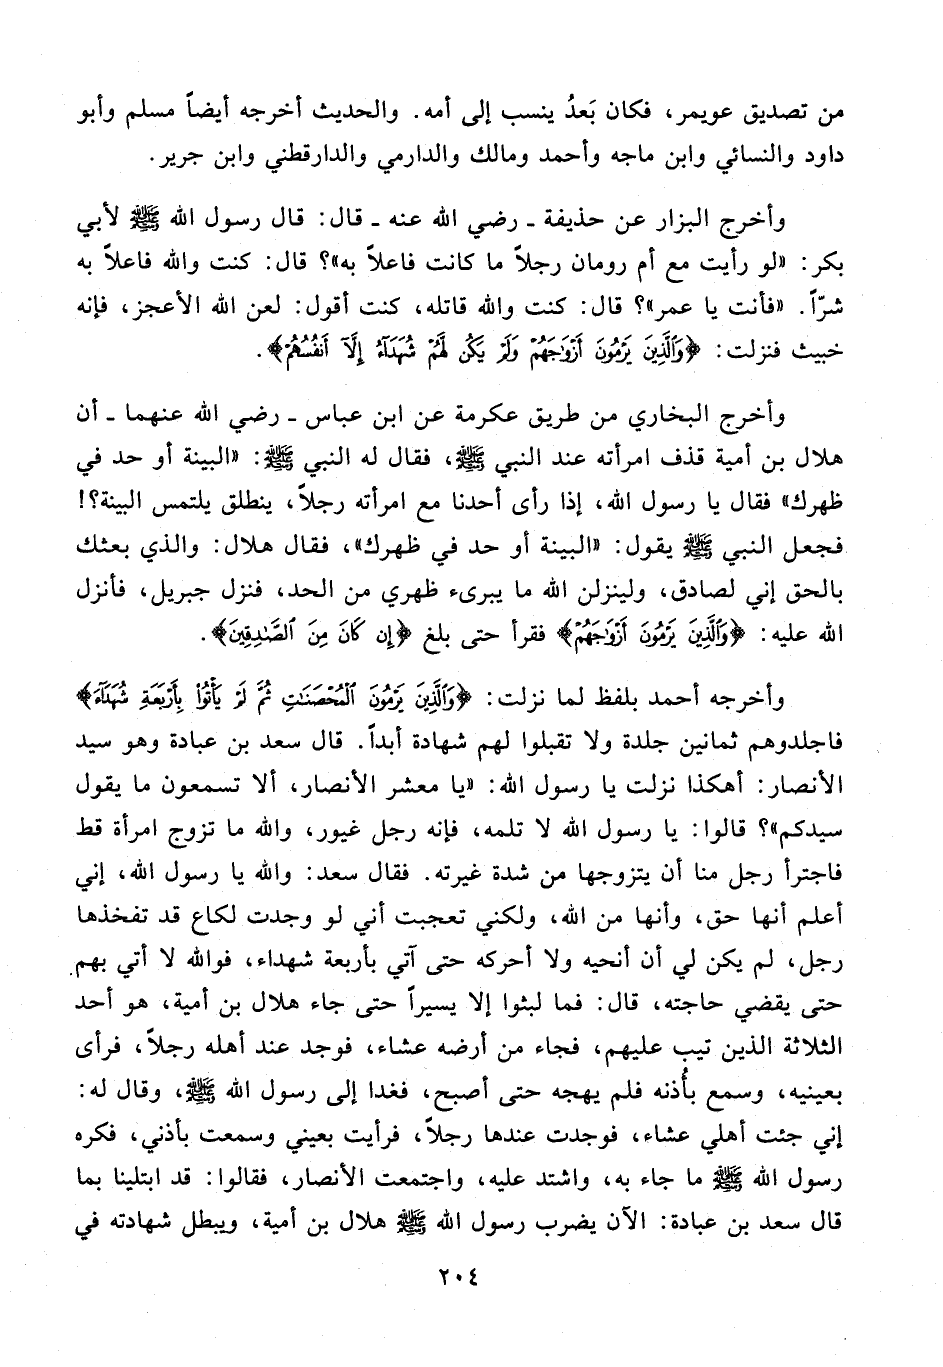 من تصديق عويمر، فكان بَعدُ ينسب إلى أمه. والحديث أخرجه أيضاً مسلم وأبو
داود والنسائي وابن ماجه وأحمد ومالك والدارمي والدارقطني وابن جرير.
وأخرج البزار عن حذيفة ـ رضي الله عنه ـ قال: قال رسول الله ﷺ لأبي
بكر: «لو رأيت مع أم رومان رجلاً ما كانت فاعلاً به»؟ قال: كنت والله فاعلاً به
شرّاً. «فأنت يا عمر»؟ قال: كنت والله قاتله، كنت أقول: لعن الله الأعجز، فإنه
خبيث فنزلت: ﴿وَٱلَّذِينَ يَرْمُونَ أَزْوَٰجَهُمْ وَلَمْ يَكُن لَّهُمْ شُهَدَآءُ إِلَّآ أَنفُسُهُمْ﴾.
وأخرج البخاري من طريق عكرمة عن ابن عباس ـ رضي الله عنهما ـ أن
هلال بن أمية قذف امرأته عند النبي ﷺ، فقال له النبي ﷺ: «البينة أو حد في
ظهرك» فقال يا رسول الله، إذا رأى أحدنا مع امرأته رجلاً، ينطلق يلتمس البينة؟!
فجعل النبي ﷺ يقول: «البينة أو حد في ظهرك»، فقال هلال: والذي بعثك
بالحق إني لصادق، ولينزلن الله ما يبرىء ظهري من الحد، فنزل جبريل، فأنزل
الله عليه: ﴿وَٱلَّذِينَ يَرْمُونَ أَزْوَٰجَهُمْ﴾ فقرأ حتى بلغ ﴿إِن كَانَ مِنَ ٱلصَّٰدِقِينَ﴾.
وأخرجه أحمد بلفظ لما نزلت: ﴿وَٱلَّذِينَ يَرْمُونَ ٱلْمُحْصَنَٰتِ ثُمَّ لَمْ يَأْتُوا۟ بِأَرْبَعَةِ شُهَدَآءَ﴾
فاجلدوهم ثمانين جلدة ولا تقبلوا لهم شهادة أبداً. قال سعد بن عبادة وهو سيد
الأنصار: أهكذا نزلت يا رسول الله: «يا معشر الأنصار، ألا تسمعون ما يقول
سيدكم»؟ قالوا: يا رسول الله لا تلمه، فإنه رجل غيور، والله ما تزوج امرأة قط
فاجترأ رجل منا أن يتزوجها من شدة غيرته. فقال سعد: والله يا رسول الله، إني
أعلم أنها حق، وأنها من الله، ولكني تعجبت أني لو وجدت لكاع قد تفخذها
رجل، لم يكن لي أن أنحيه ولا أحركه حتى آتي بأربعة شهداء، فوالله لا أتي بهم
حتى يقضي حاجته، قال: فما لبثوا إلا يسيراً حتى جاء هلال بن أمية، هو أحد
الثلاثة الذين تيب عليهم، فجاء من أرضه عشاء، فوجد عند أهله رجلاً، فرأى
بعينيه، وسمع بأُذنه فلم يهجه حتى أصبح، فغدا إلى رسول الله ﷺ، وقال له:
إني جئت أهلي عشاء، فوجدت عندها رجلاً، فرأيت بعيني وسمعت بأذني، فكره
رسول الله ﷺ ما جاء به، واشتد عليه، واجتمعت الأنصار، فقالوا: قد ابتلينا بما
قال سعد بن عبادة: الآن يضرب رسول الله ﷺ هلال بن أمية، ويبطل شهادته في
٢٠٤